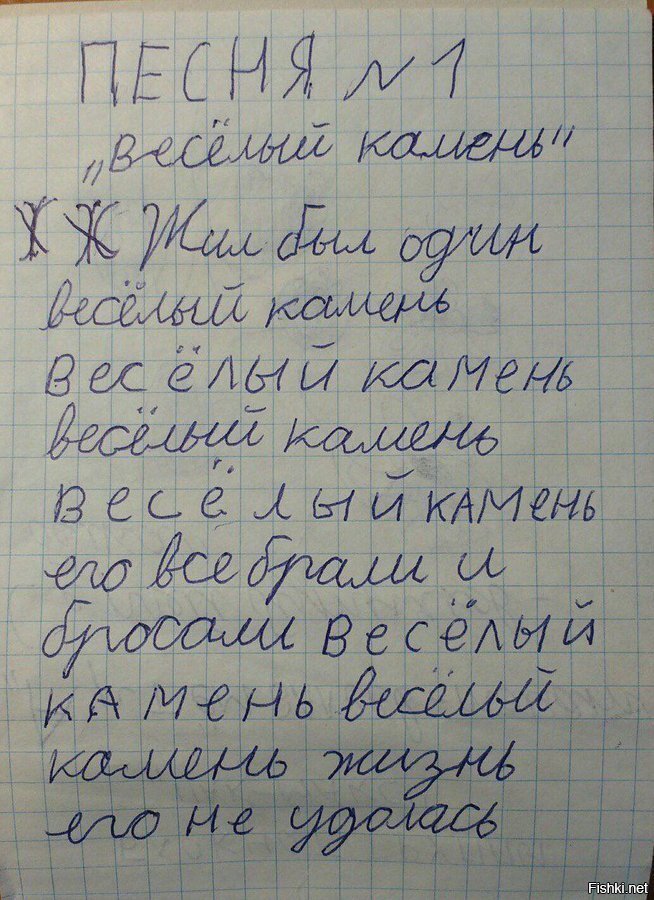 ПЕСНЯ N 1
„весёлый камень"
Ж Ж Жил был один
весёлый камень
весёлый камень
весёлый камень
весёлый камень
его все брали и
бросали весёлый
камень весёлый
камень жизнь
его не удолась
Fishki.net